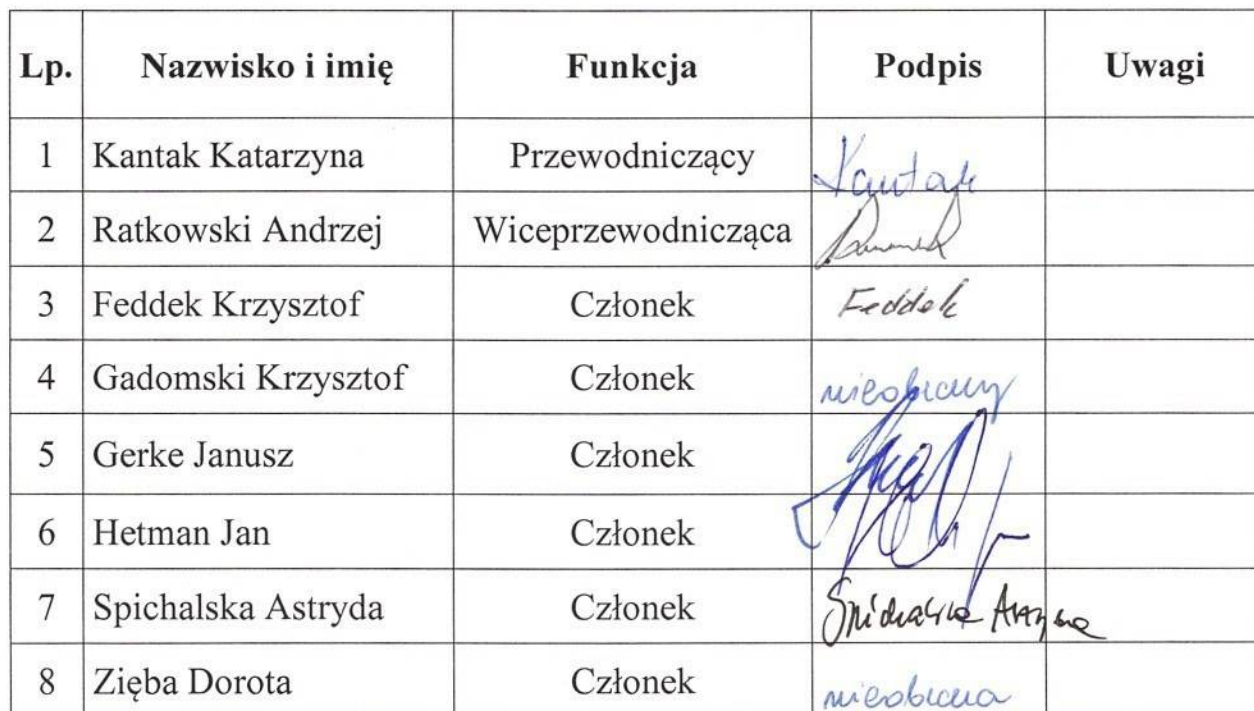 Lp. Nazwisko i imię Funkcja Podpis Uwagi
1 Kantak Katarzyna Przewodniczący Kantak
2 Ratkowski Andrzej Wiceprzewodnicząca
3 Feddek Krzysztof Członek Feddek
4 Gadomski Krzysztof Członek nieobecny
5 Gerke Janusz Członek
6 Hetman Jan Członek
7 Spichalska Astryda Członek Spichalska
8 Zięba Dorota Członek nieobecna